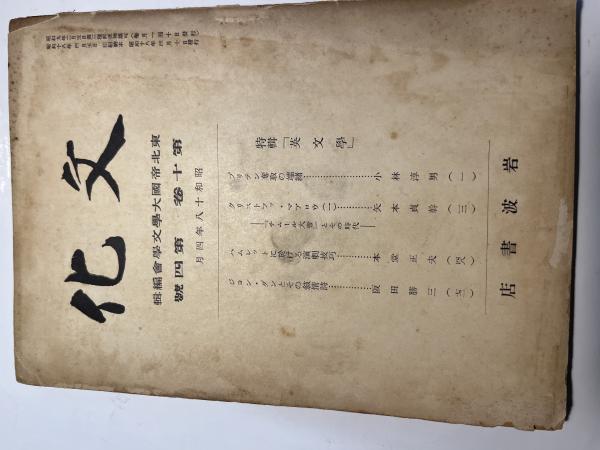 文化
東北帝國大學文學會編輯
第十卷 第四號
昭和十八年四月
特輯「英文學」
ブリテン奪取の端緒……小林淳男(一)
クリストファ・マアロウ(一)……矢本貞幹(三)
―「タムバレイン大王」とその時代―
ハムレットに於ける演劇技巧……本堂正夫(四八)
ジョン・ダンとその敍情詩……阪田勝三(七一)
岩波書店